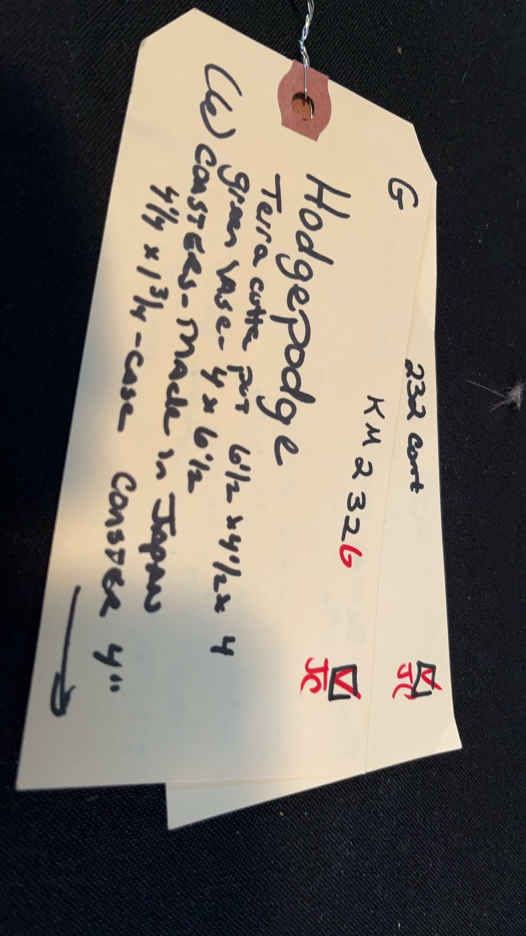 G
232 cont
JC
KM2326
JC
Hodgepodge
Terra cotta pot 6 1/2 x 4 1/2 x 4
green vase - 4 x 6 1/2
(6) COASTERS - Made in Japan
4 1/4 x 1 3/4 - case COASTER 4"